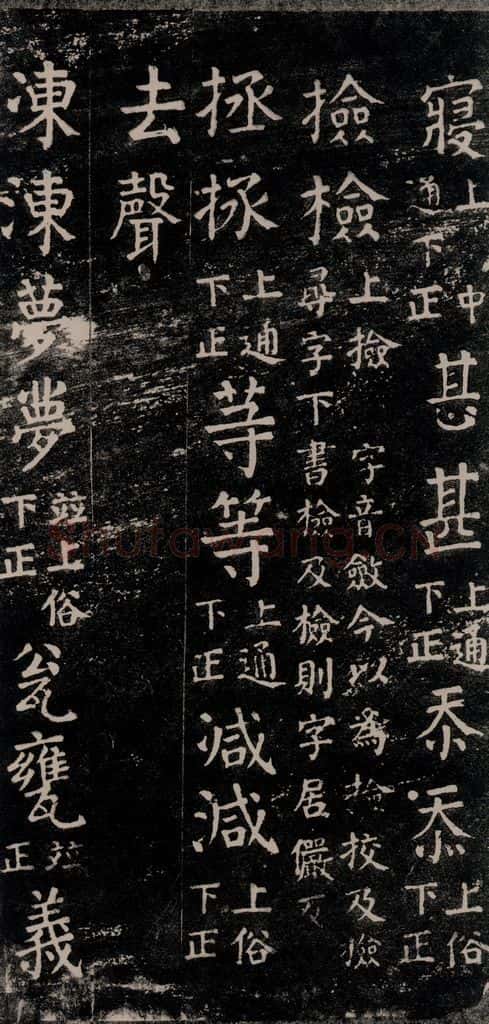 寢上中通下正甚甚上通下正忝忝上俗下正
撿檢上撿字音斂今以為撿挍及撿尋字下書檢及檢則字居儼反
拯拯上通下正䓁等上通下正减減上俗下正
去聲
凍涷夢夢竝上俗下正瓮甕竝正義
shufawang.CN